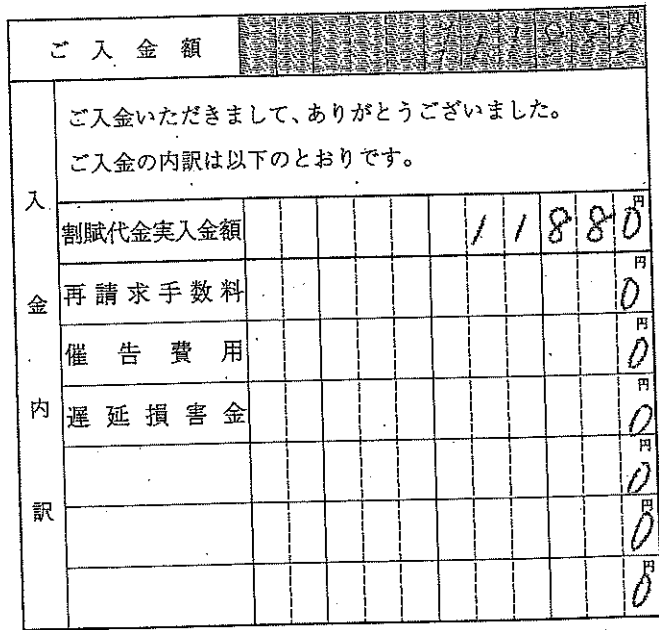 ご入金額 11880円
ご入金いただきまして、ありがとうございました。
ご入金の内訳は以下のとおりです。
入金内訳
割賦代金実入金額 11880円
再請求手数料 0円
催告費用 0円
遅延損害金 0円
0円
0円
0円